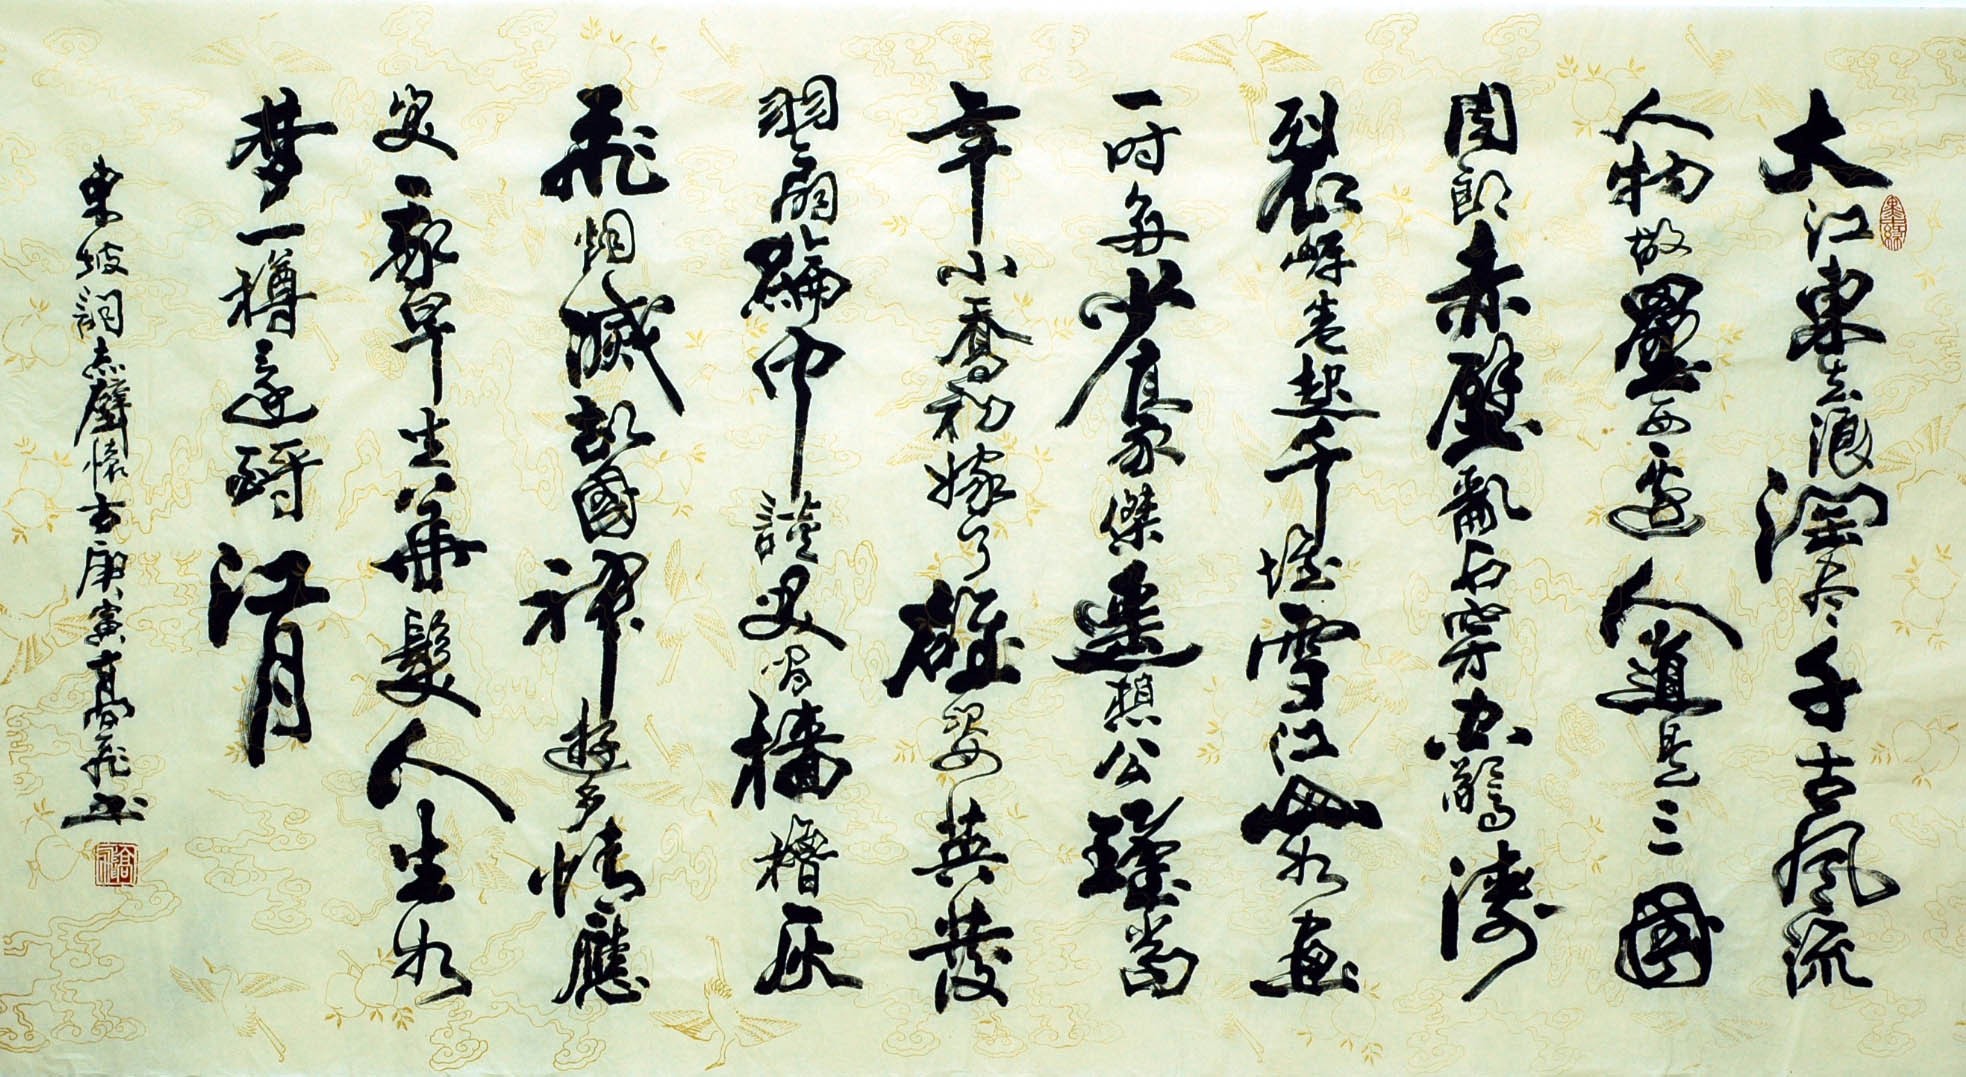 大江東去浪淘尽千古風流
人物故壘西邊人道是三國
周郎赤壁亂石穿空驚濤
裂岸卷起千堆雪江山如画
一時多少豪傑遥想公瑾當
年小喬初嫁了雄姿英發
羽扇綸巾談笑間檣櫓灰
飛烟滅故國神遊多情應
笑我早生華髮人生如
梦一樽還酹江月
東坡詞赤壁懷古庚寅高飛书